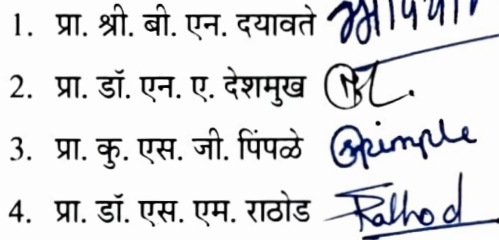 1. प्रा. श्री. बी. एन. दयावते
2. प्रा. डॉ. एन. ए. देशमुख
3. प्रा. कु. एस. जी. पिंपळे Spimple
4. प्रा. डॉ. एस. एम. राठोड Rathod